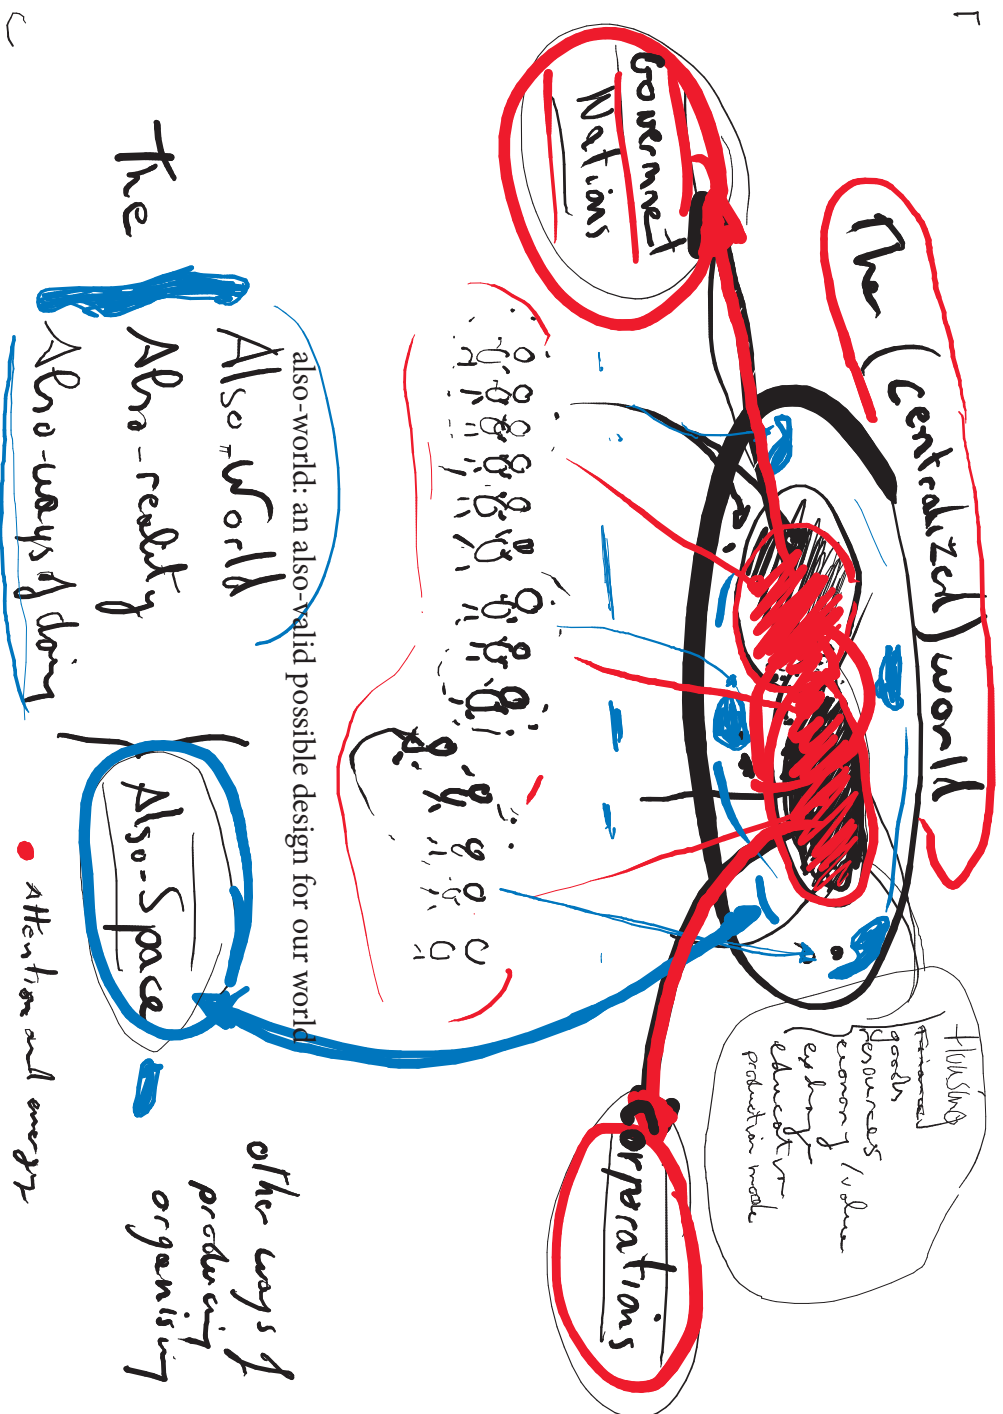 The (centralized) world
Governmet
Nations
Housing
Financial
goods
resources
economy / value
exchange
education
production mode
Corporations
also-world: an also-valid possible design for our world
The
Also-World
Also-reality
Also-ways of doing
Also-Space
other ways of
producing
organising
Attention and energy